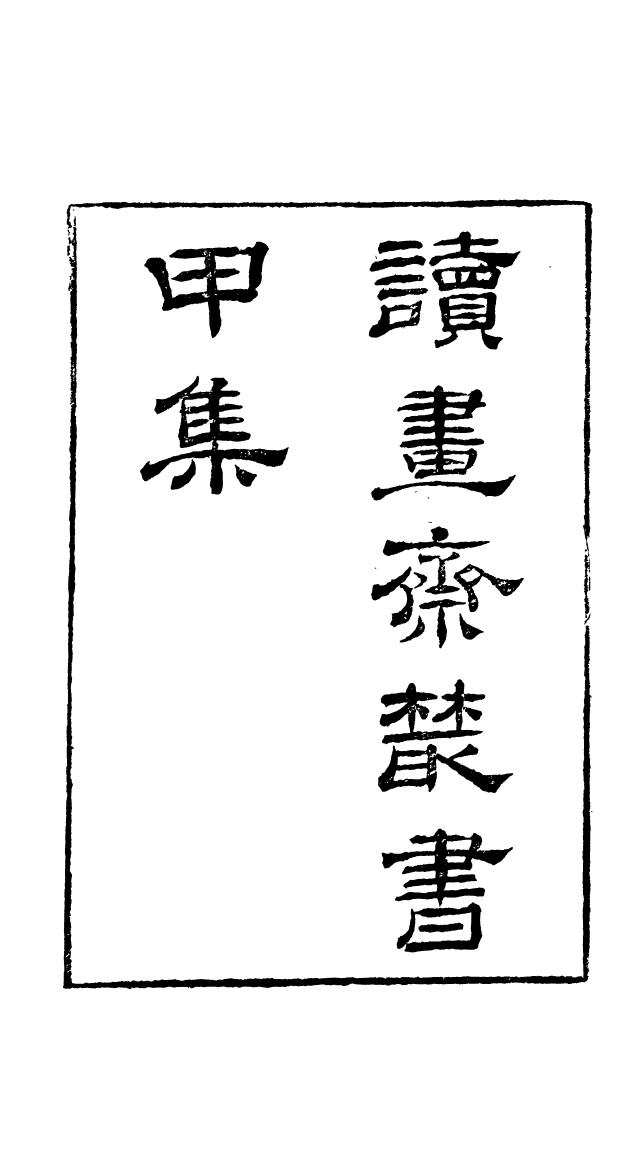 讀畫齋叢書
甲集